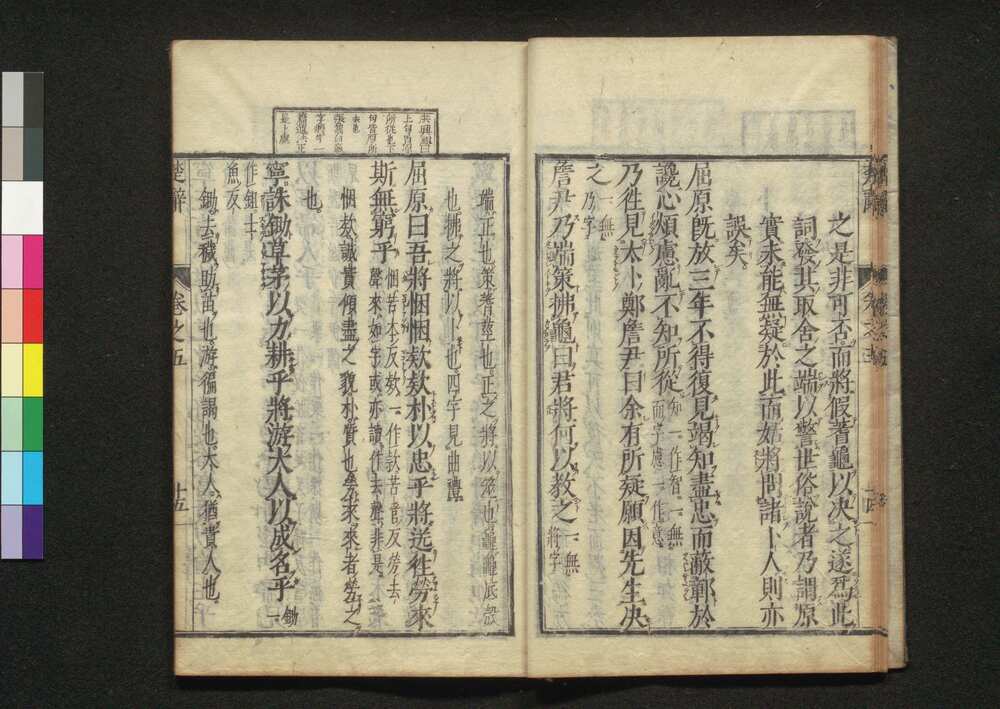 之是非可否而將假蓍龜以決之遂爲此
詞發其取舍之端以警世俗說者乃謂原
實未能無疑於此而始將問諸卜人則亦
誤矣
屈原既放三年不得復見竭知盡忠而蔽鄣於
讒心煩慮亂不知所從知一作智一無而字慮一作意
乃往見太卜鄭詹尹曰余有所疑願因先生決
之一無乃字
詹尹乃端策拂龜曰君將何以教之一無將字
端正也策蓍莖也正之將以筮也龜龜底殼
也拂之將以卜也四字見曲禮
屈原曰吾將悃悃款款朴以忠乎將送往勞來
斯無窮乎悃苦本反款一作欵苦管反勞去聲來如字或亦讀作去聲非是
悃款誠實傾盡之貌朴質也勞來來者勞之
也
寧誅鋤草茅以力耕乎將游大人以成名乎鋤一
作鉏士魚反
鋤去穢助苗也游徧謁也大人猶貴人也
楚辭
卷之五
十五
洪興祖曰
上句皆原
所從也下
句皆原所
去也